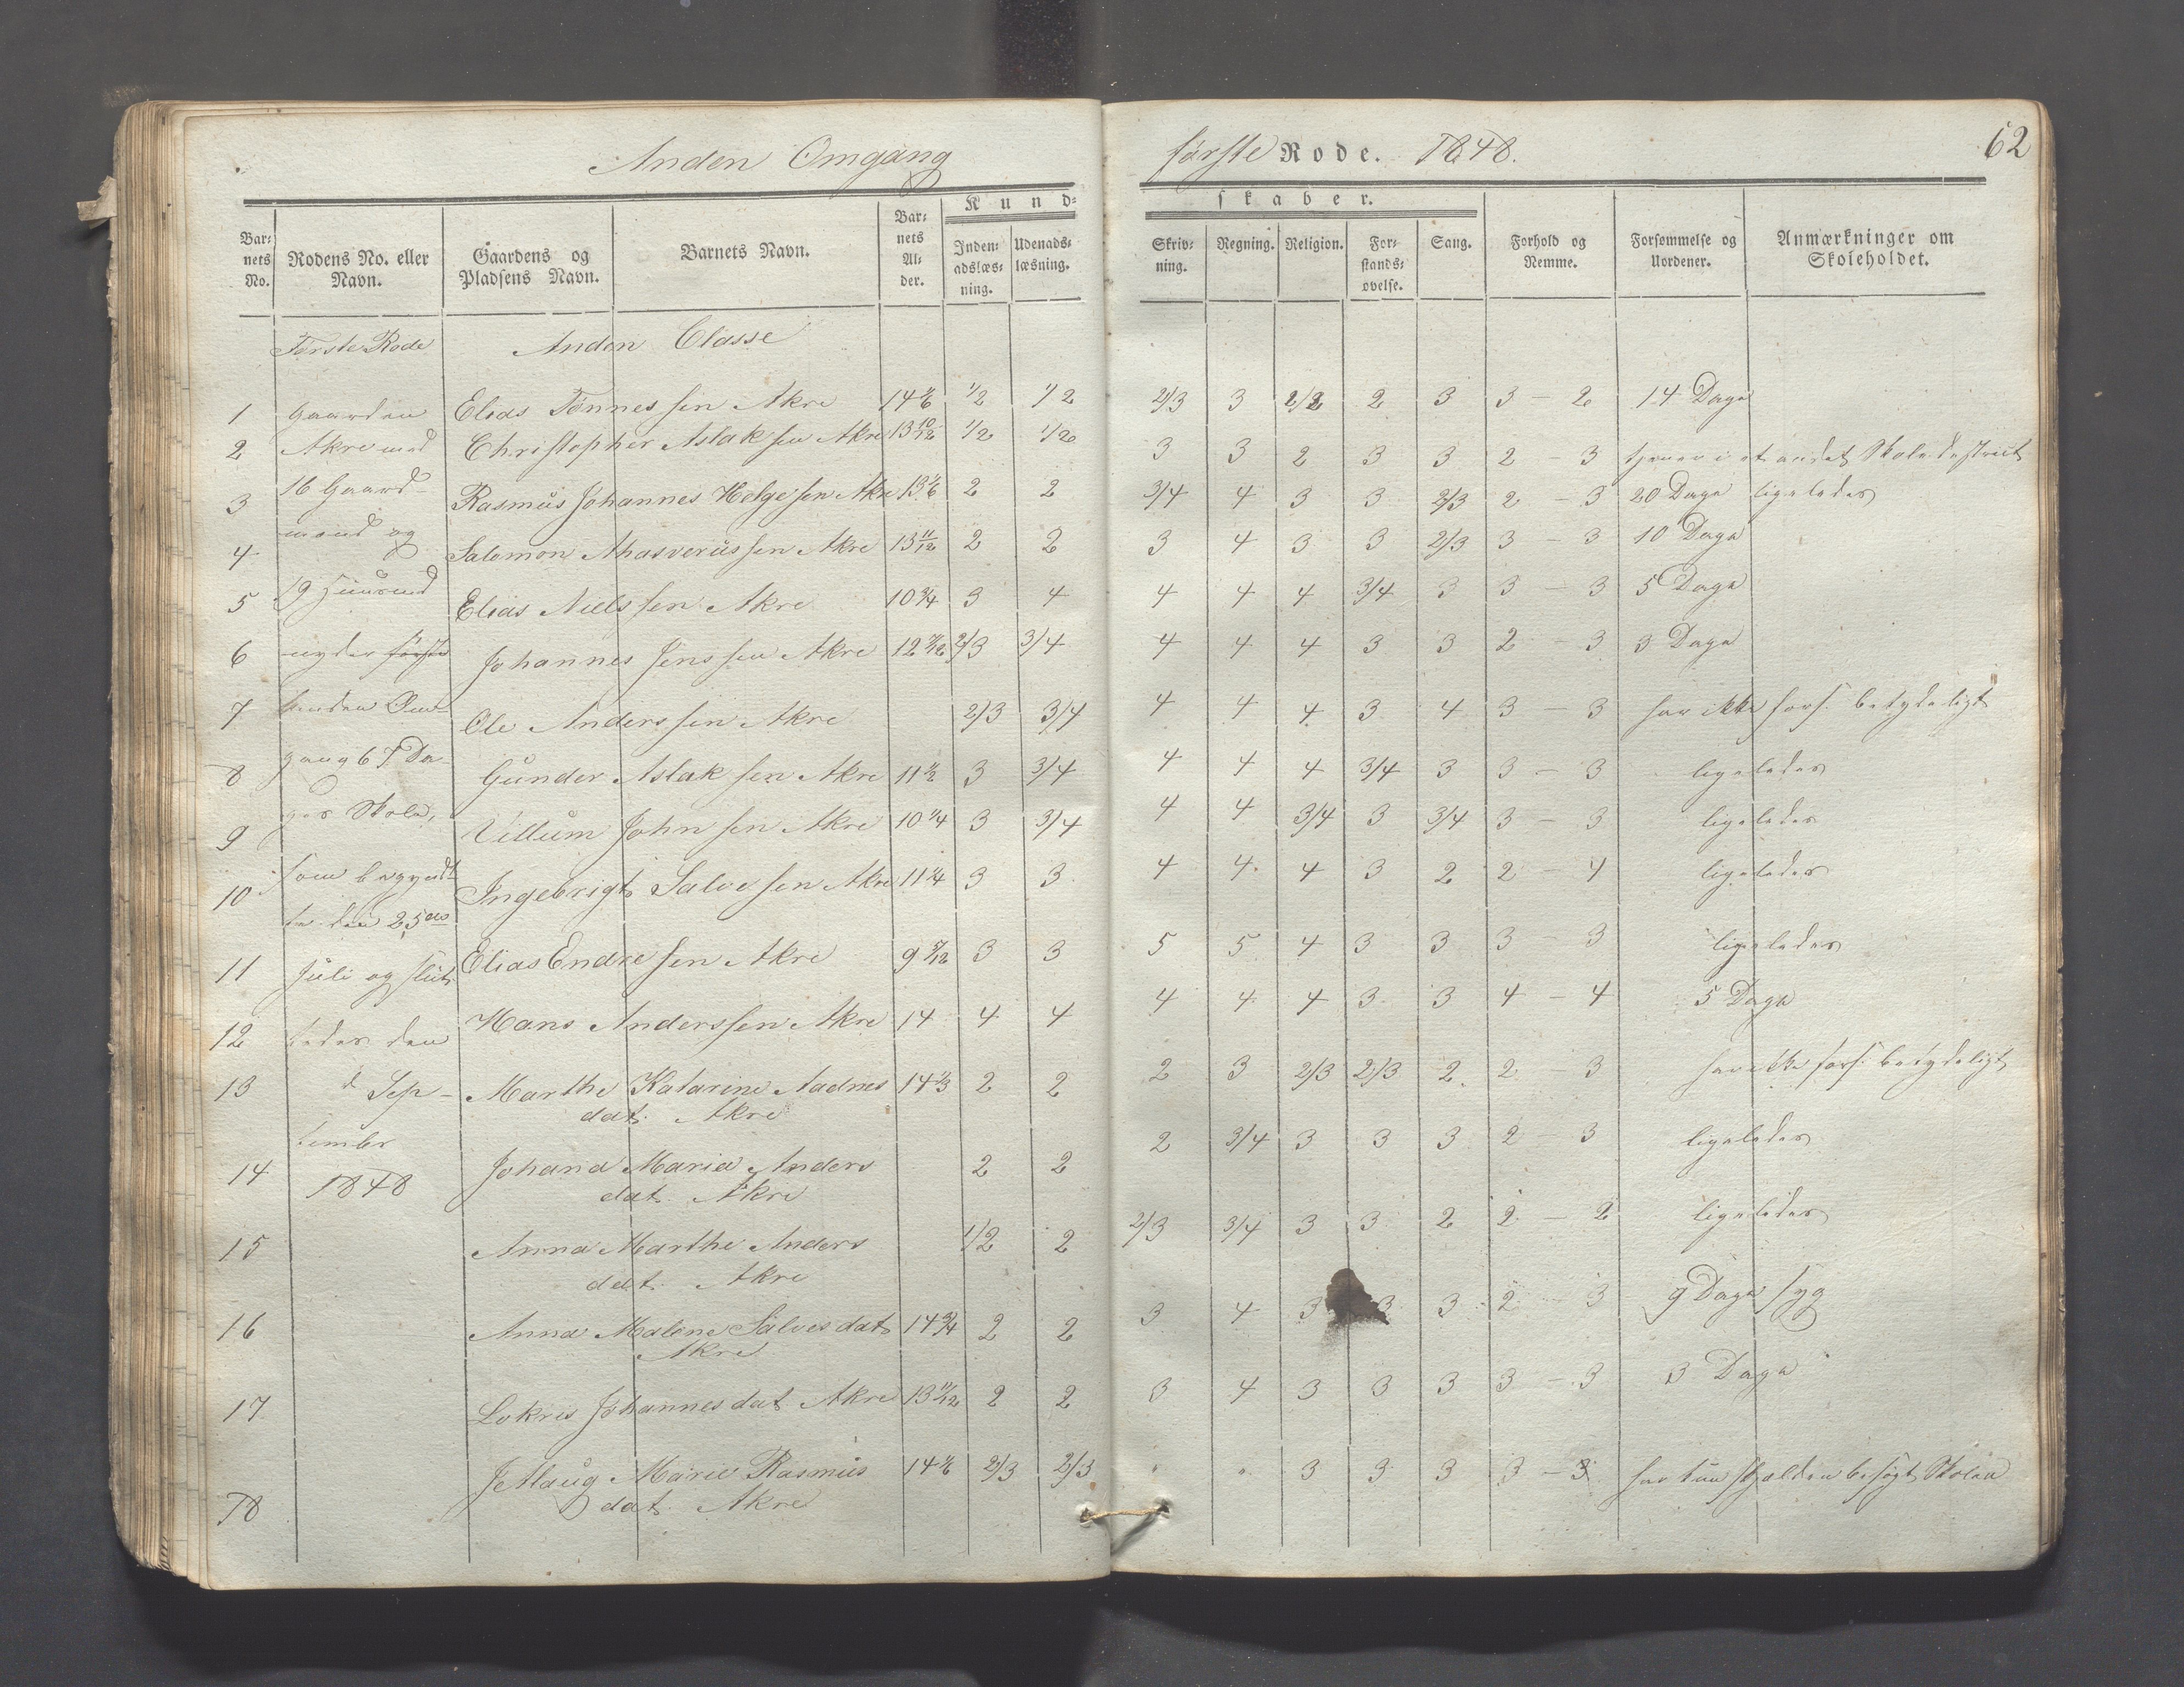 Anden Omgang
første Rode. 1848. 62
Kundskaber.
Barnets No. Rodens No. eller Navn. Gaardens og Pladsens Navn. Barnets Navn. Barnets Alder. Indenadslæsning. Udenadslæsning. Skrivning. Regning. Religion. Forstandsøvelse. Sang. Forhold og Nemme. Forsømmelse og Uordener. Anmærkninger om Skoleholdet.
Første Rode Anden Classe
1 Gaarden Elias Tønnessen Akre 14 1/6 1/2 1/2 2/3 3 2/3 2 3 3 - 2 14 Dage
2 Akre med Christopher Aslaksen Akre 13 10/12 1/2 1/2 3 3 2 3 3 2 - 3 tjener i et andet Skoledistrict
3 16 Gaard- Rasmus Johannes Helgesen Akre 13 1/6 2 2 3/4 4 3 3 2/3 2 - 3 20 Dage ligeledes
4 mænd og Salomon Ahasverussen Akre 13 11/12 2 2 3 4 3 3 2/3 3 - 3 10 Dage
5 19 Huusmd Elias Nielssen Akre 10 3/4 3 4 4 4 4 3/4 3 3 - 3 5 Dage
6 nyder første Johannes Jenssen Akre 12 2/3 3/4 4 4 4 3 3 2 - 3 3 Dage
7 anden Om- Ole Anderssen Akre 2/3 3/4 4 4 4 3 4 3 - 3 har ikke fors. betydeligt
8 gang 67 Da- Gunder Aslaksen Akre 11 1/2 3 3/4 4 4 4 3/4 3 3 - 3 ligeledes
9 ges Skole, Villum Johnsen Akre 10 1/4 3 3/4 4 4 3/4 3 3/4 3 - 3 ligeledes
10 som begyndt- Ingebrigt Salvesen Akre 11 1/4 3 3 4 4 4 3 2 2 - 4 ligeledes
te den 25de
11 Juli og slut- Elias Endresen Akre 9 5/12 3 3 5 5 4 3 3 3 - 3 ligeledes
12 tedes den Hans Anderssen Akre 14 4 4 4 4 4 3 3 4 - 4 5 Dage
13 d Sep- Marthe Katarine Aadnes 14 1/3 2 2 2 3 2/3 2/3 2 2 - 3 har ikke fors. betydeligt
dat. Akre
tember
14 1848 Johana Maria Anders 2 2 2 3/4 3 3 3 2 - 3 ligeledes
dat. Akre
15 Anna Marthe Anders 1/2 2 2/3 3/4 3 3 2 2 - 2 ligeledes
dat. Akre
16 Anna Malene Salvesdat 14 3/4 2 2 3 4 3 3 3 2 - 3 9 Dage syg
Akre
17 Lokris Johannesdat Akre 13 11/12 2 2 3 4 3 3 3 3 - 3 3 Dage
18 Marie Rasmus 14 1/6 2/3 2/3 " " 3 3 3 3 - 3 har kun sjelden besøgt Skolen
dat. Akre